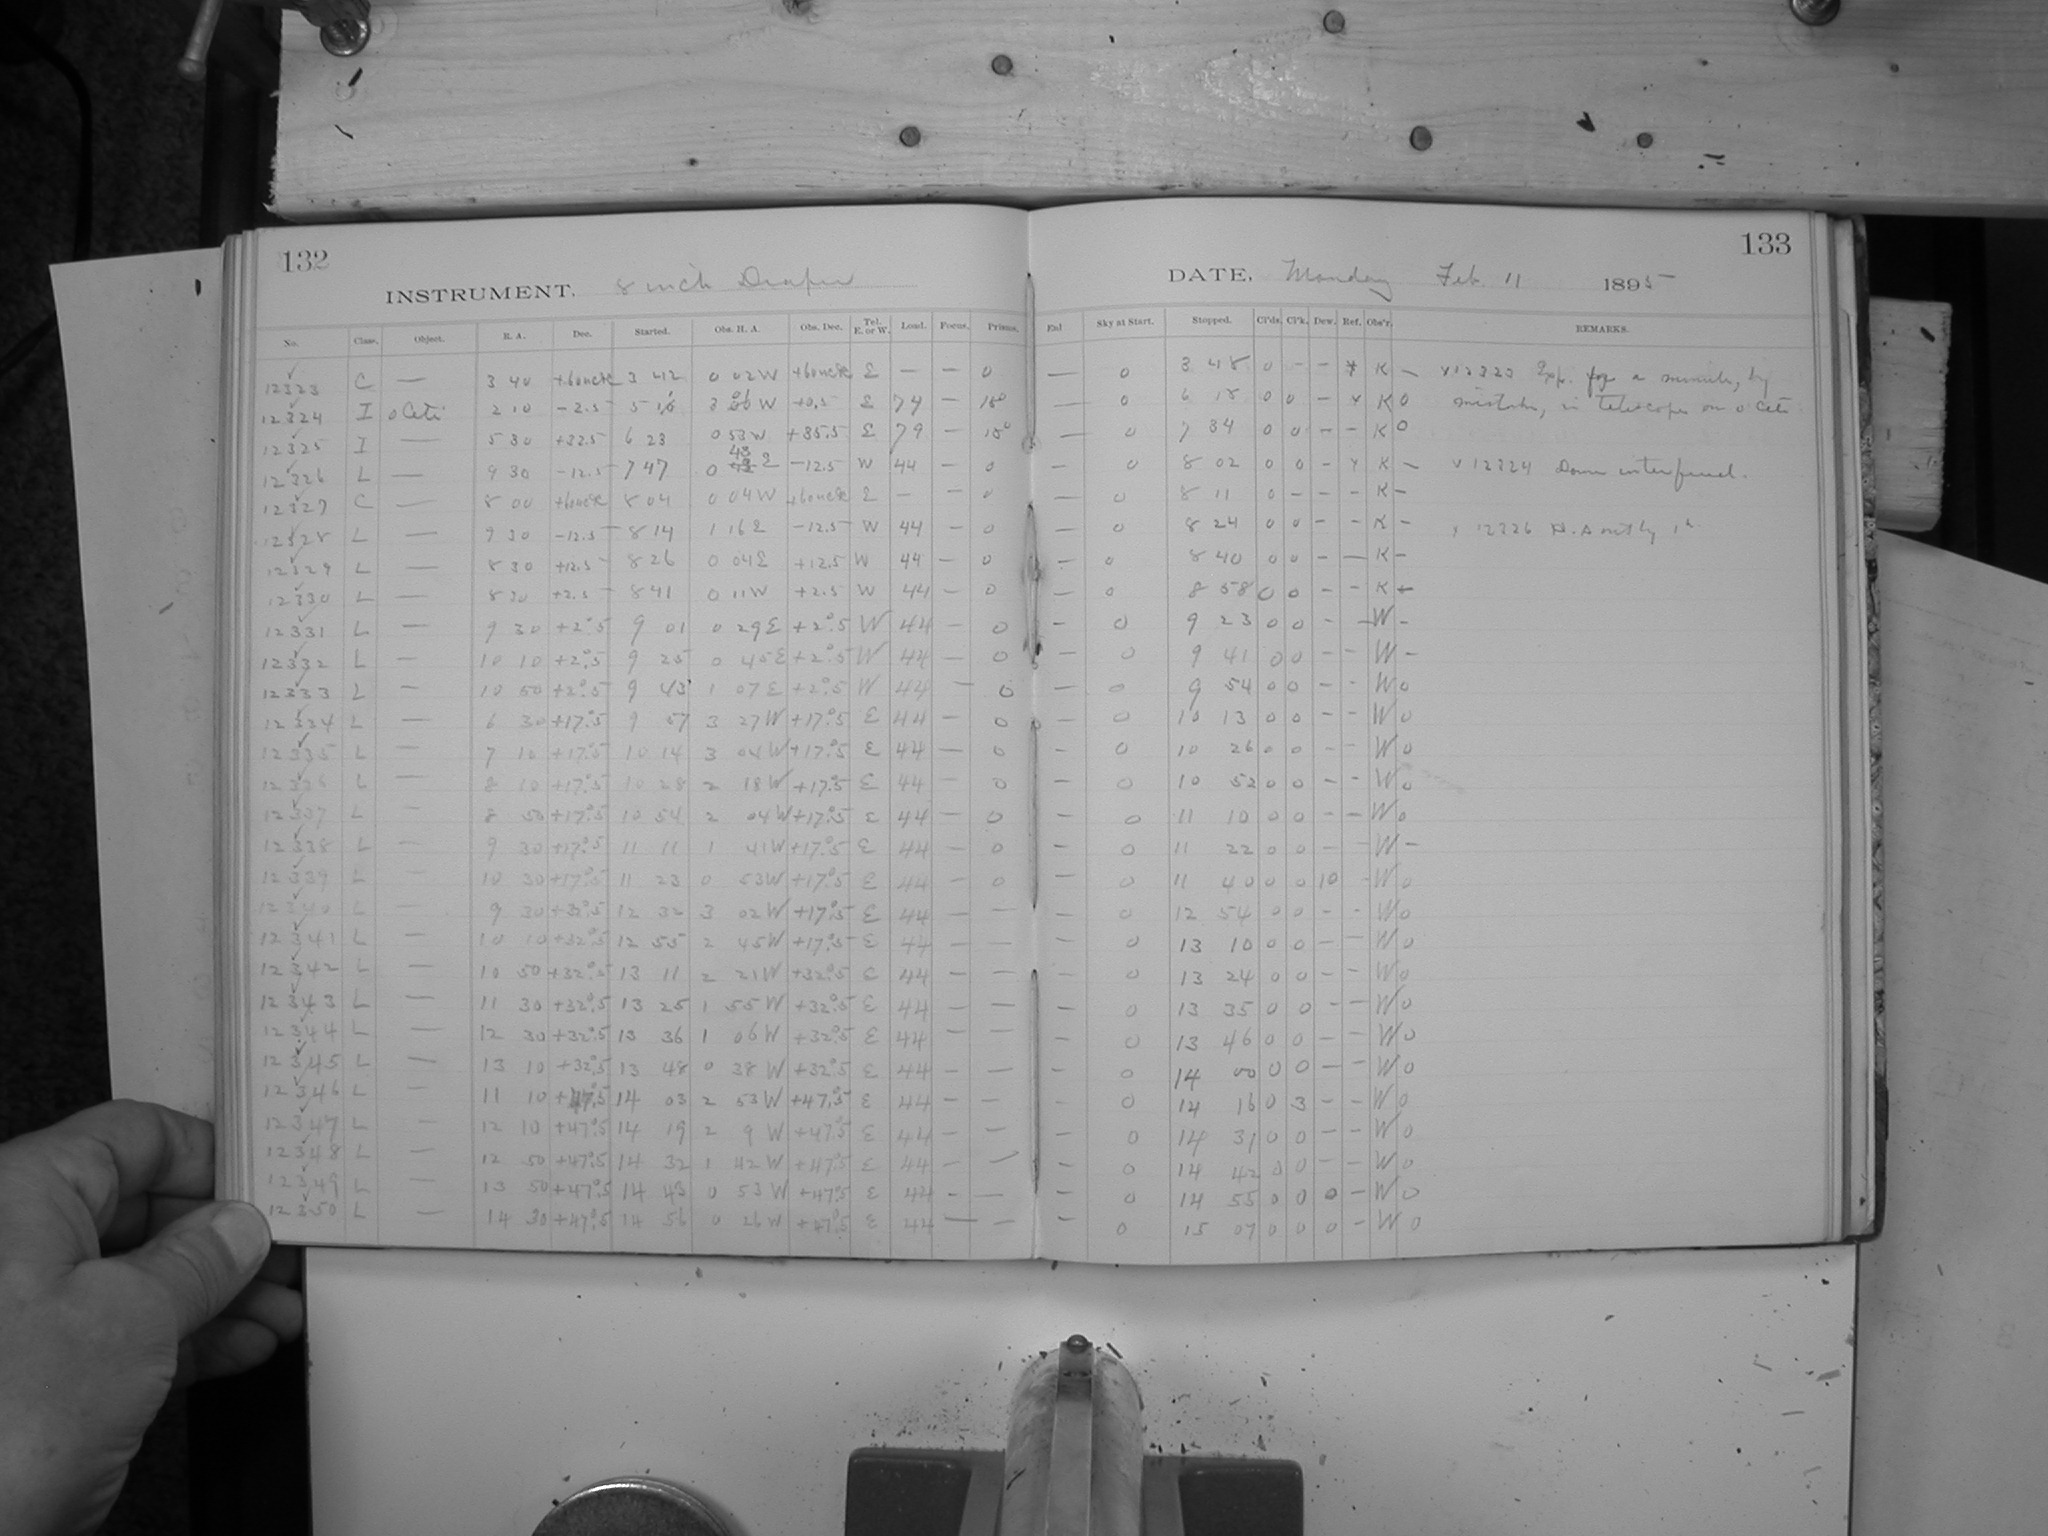 132
133
INSTRUMENT. 8 inch Draper
DATE, Monday Feb. 11 1895
No. Class. Object. R. A. Dec. Started. Obs. H. A. Obs. Dec. Tel. E. or W. Load. Focus. Prisms. Exl Sky at Start. Stopped. Cl'ds. Cl'k. Dew. Ref. Obs'r. REMARKS.
12323 C — 3 40 3 42 0 02 W E — — 0 — 0 3 48 0 - - K — v 12323 Exp. for a minute, by
12324 I o Ceti 2 10 -2.5 W +0.5 E 74 — 15° — 0 6 18 0 0 - K 0 mistake, in telescope on o Ceti
12325 I — 5 30 +32.5 6 23 0 53 W +35.5 E 79 — 15° — 0 7 34 0 0 - - K 0
12326 L — 9 30 -12.5 7 47 0 43 E -12.5 W 44 — 0 — 0 8 02 0 0 - K — v 12324 Dome interfered.
12327 C — 8 00 8 04 0 04 W E - — 0 — 0 8 11 0 - - - K -
12328 L — 9 30 -12.5 8 14 1 16 E -12.5 W 44 — 0 — 0 8 24 0 0 - - K - 12326
12329 L — 8 30 +12.5 8 26 0 04 E +12.5 W 44 — 0 — 0 8 40 0 0 - — K -
12330 L — 8 30 +2.5 8 41 0 11 W +2.5 W 44 — 0 — 0 8 58 0 0 - - K -
12331 L — 9 30 +2°.5 9 01 0 29 E +2°.5 W 44 — 0 — 0 9 23 0 0 - - W -
12332 L — 10 10 +2°.5 9 25 0 45 E +2°.5 W 44 — 0 — 0 9 41 0 0 - - W -
12333 L — 10 50 +2°.5 9 43 1 07 E +2°.5 W 44 — 0 — 0 9 54 0 0 - - W 0
12334 L — 6 30 +17°.5 9 57 3 27 W +17°.5 E 44 — 0 — 0 10 13 0 0 - - W 0
12335 L — 7 10 +17°.5 10 14 3 04 W +17°.5 E 44 — 0 — 0 10 26 0 0 - - W 0
12336 L — 8 10 +17°.5 10 28 2 18 W +17°.5 E 44 — 0 — 0 10 52 0 0 - - W 0
12337 L — 8 50 +17°.5 10 54 2 04 W +17°.5 E 44 — 0 — 0 11 10 0 0 - - W 0
12338 L — 9 30 +17°.5 11 11 1 41 W +17°.5 E 44 — 0 — 0 11 22 0 0 - - W -
12339 L — 10 30 +17°.5 11 23 0 53 W +17°.5 E 44 — 0 — 0 11 40 0 0 10 - W 0
12340 L — 9 30 +32°.5 12 32 3 02 W +17°.5 E 44 — — — 0 12 54 0 0 - - W 0
12341 L — 10 10 +32°.5 12 55 2 45 W +17°.5 E 44 — — — 0 13 10 0 0 - - W 0
12342 L — 10 50 +32°.5 13 11 2 21 W +32°.5 E 44 — — — 0 13 24 0 0 - - W 0
12343 L — 11 30 +32°.5 13 25 1 55 W +32°.5 E 44 — — — 0 13 35 0 0 - - W 0
12344 L — 12 30 +32°.5 13 36 1 06 W +32°.5 E 44 — — — 0 13 46 0 0 - - W 0
12345 L — 13 10 +32°.5 13 48 0 38 W +32°.5 E 44 — — — 0 14 00 0 0 - - W 0
12346 L — 11 10 +47.5 14 03 2 53 W +47.5 E 44 — — — 0 14 16 0 3 - - W 0
12347 L — 12 10 +47°.5 14 19 2 9 W +47°.5 E 44 — — — 0 14 31 0 0 - - W 0
12348 L — 12 50 +47°.5 14 32 1 42 W +47°.5 E 44 — — — 0 14 42 0 0 - - W 0
12349 L — 13 50 +47°.5 14 43 0 53 W +47°.5 E 44 — — — 0 14 55 0 0 0 - W 0
12350 L — 14 30 +47°.5 14 56 0 26 W +47°.5 E 44 — — — 0 15 07 0 0 0 - W 0